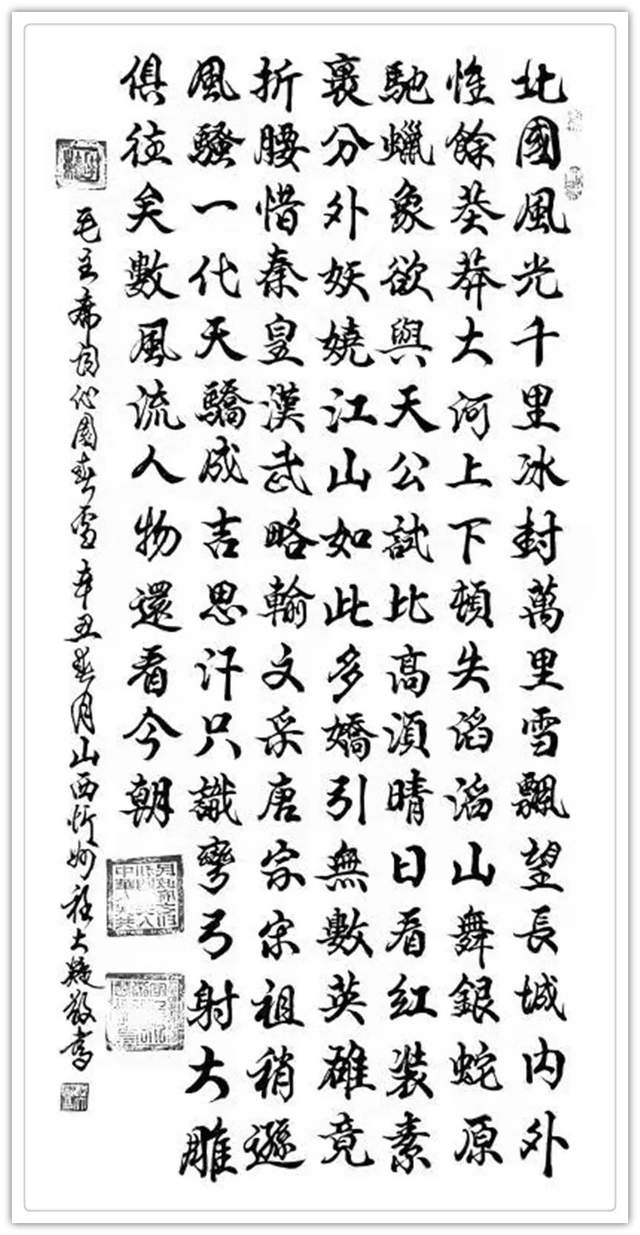 北國風光千里冰封萬里雪飄望長城内外
惟餘莽莽大河上下頓失滔滔山舞銀蛇原
馳蠟象欲與天公試比高須晴日看紅裝素
裹分外妖嬈江山如此多嬌引無數英雄竟
折腰惜秦皇漢武略輸文采唐宗宋祖稍遜
風騷一代天驕成吉思汗只識彎弓射大雕
俱往矣數風流人物還看今朝
毛主席词沁園春雪辛丑春月山西忻州程大敬書